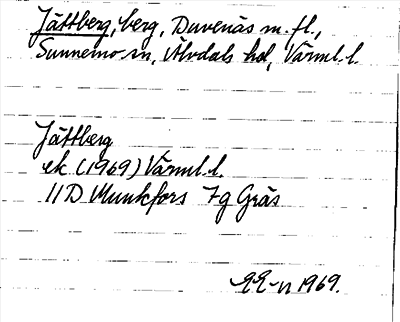 Jättberg, berg, Duvenäs m. fl.,
Sunnemo sn, Älvdals hd, Värml. l.
Jättberg
ek. (1969) Värml. l.
11D Munkfors 7g Gräs
1969.